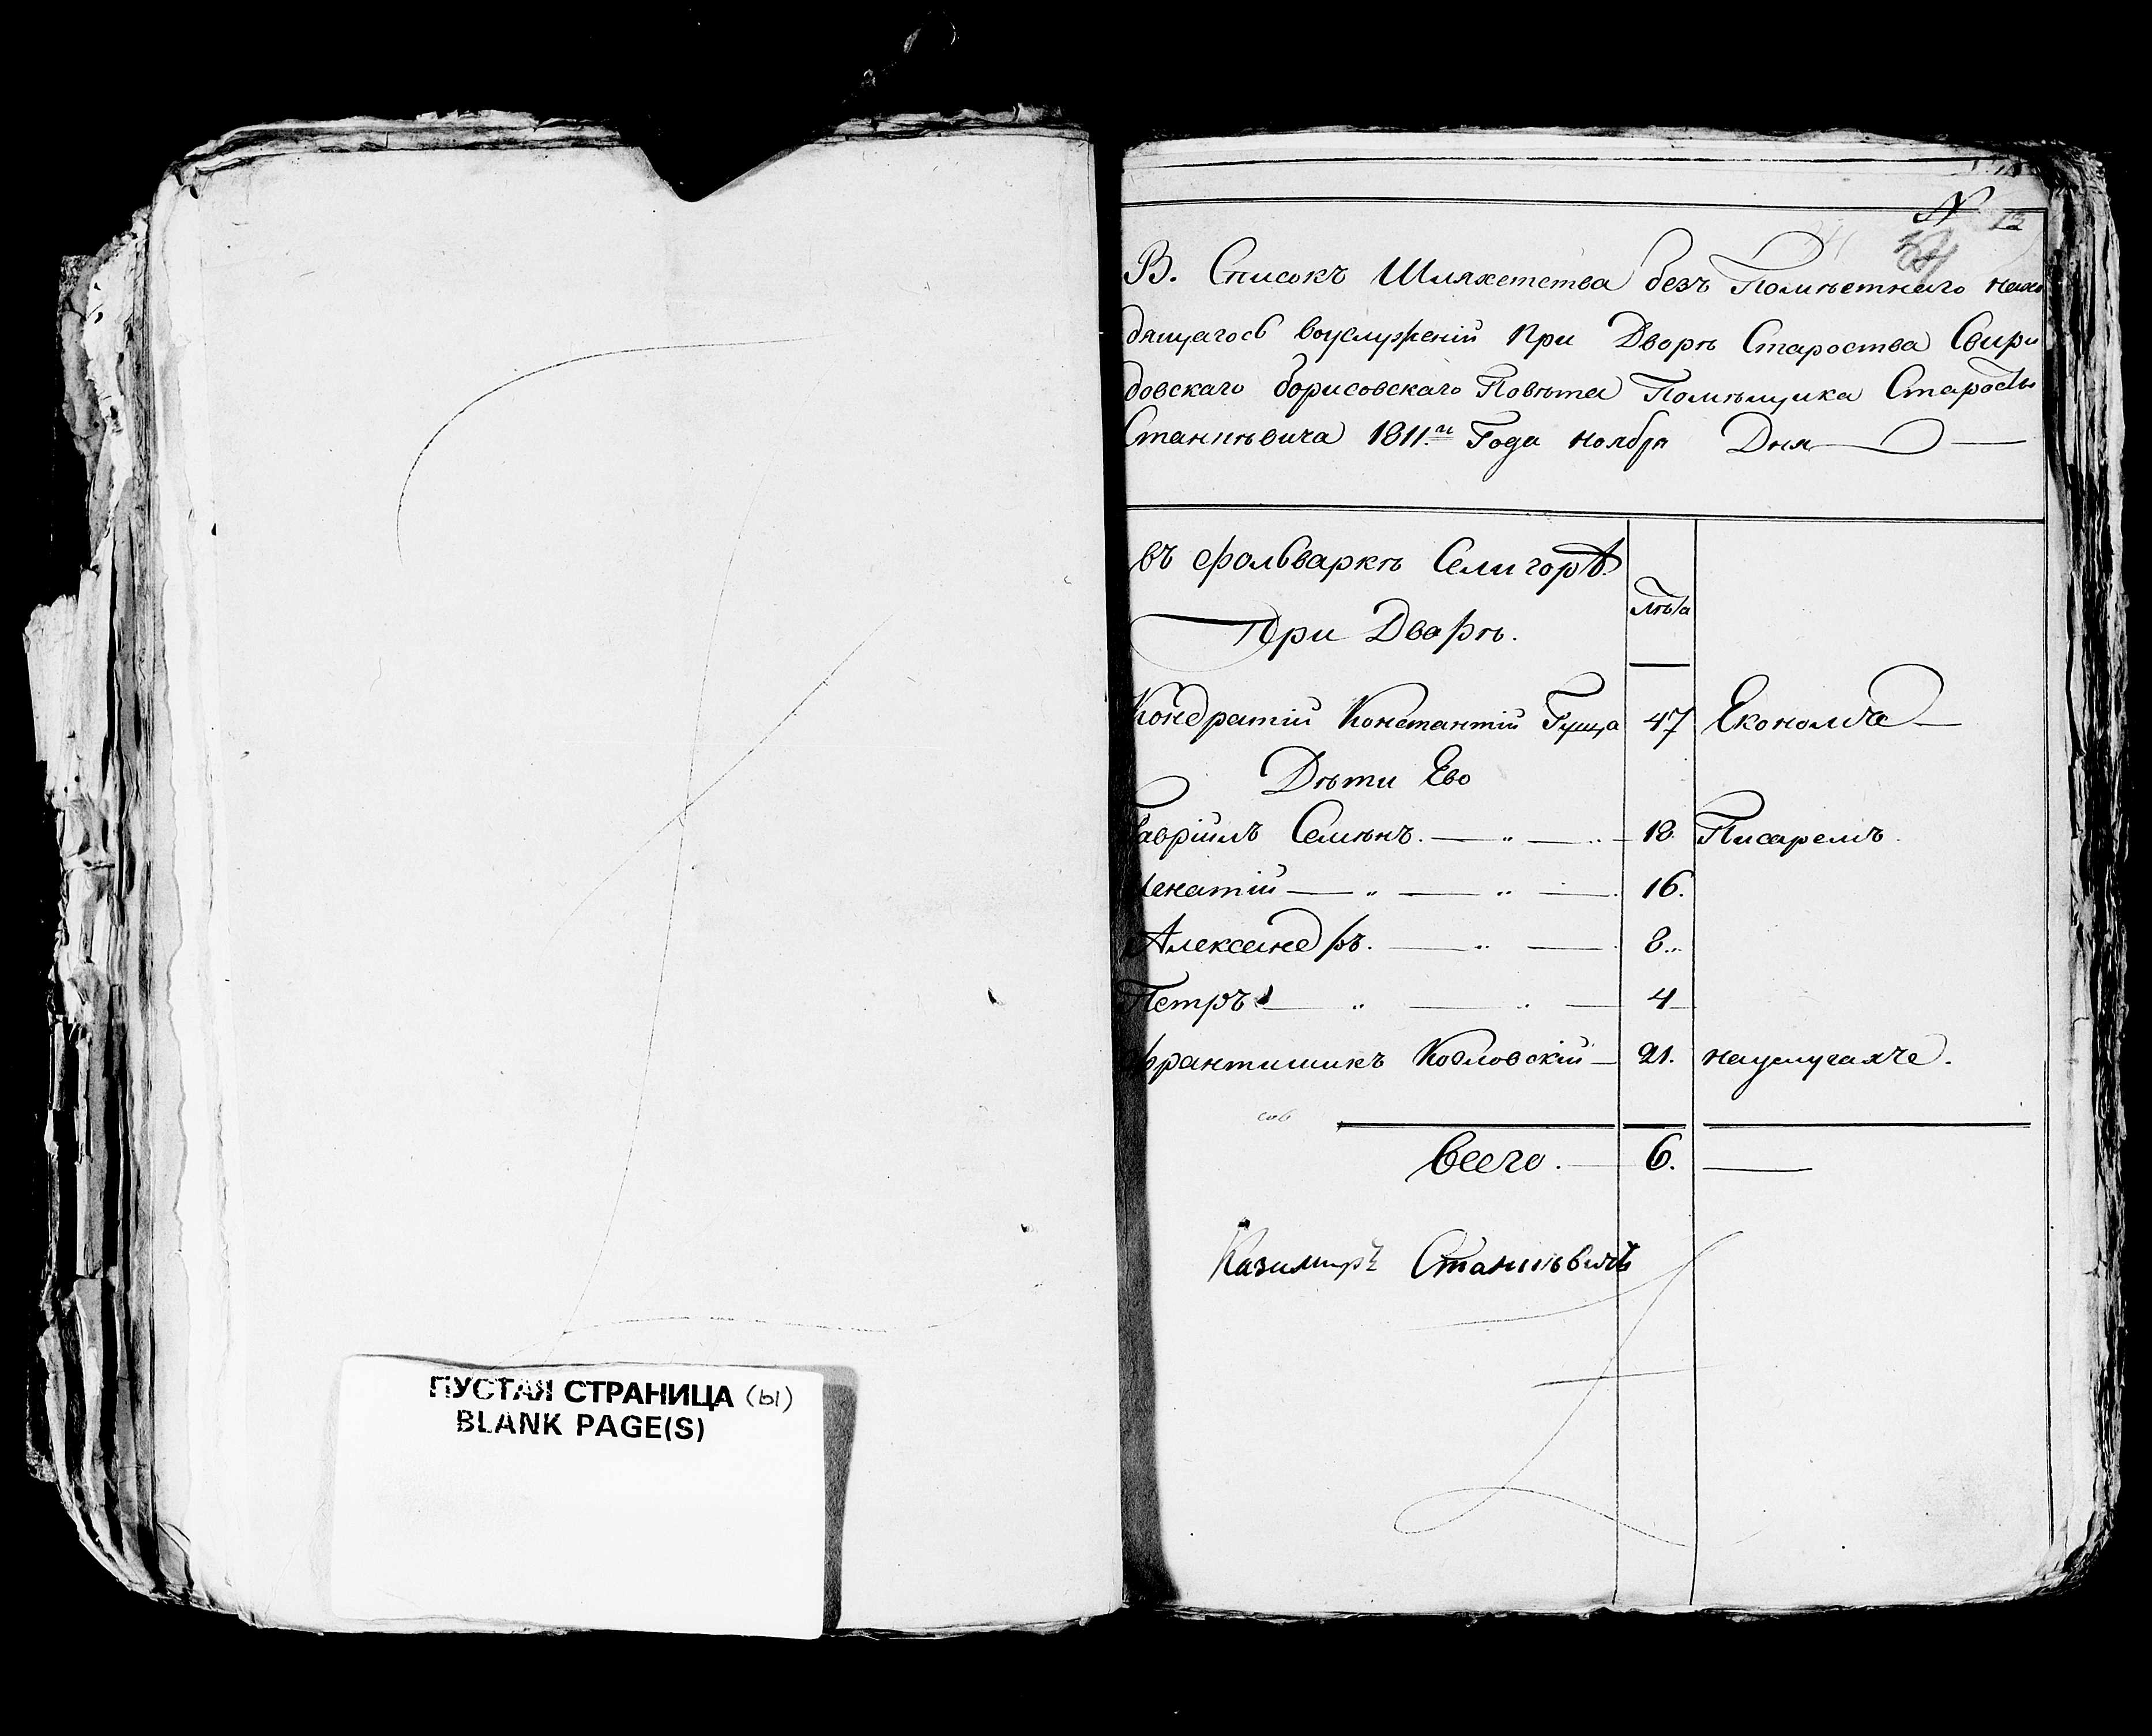 N 13
В. Списокъ Шляхетства безъ Поместнаго нахо
дящагось воуслуженіи При Дворѣ Староства Свири
довскаго борисовскаго Повѣта Помѣщика Старосты
Станкѣвича 1811.го Года ноября Дня
въ фольваркѣ Селигорѣ.
При Дворѣ.
лѣта
Кондратій Константій Гуща 47 Економъ
Дѣти Ево
Гавріилъ Семѣнъ. 18. Писаремъ.
Игнатій 16.
Александръ. 8.
Петръ 4
Франтишикъ Козловскій 21. науслугахъ.
сов
Всего. 6.
Казимиръ Станкѣвичъ
ПУСТАЯ СТРАНИЦА (Ы)
BLANK PAGE(S)